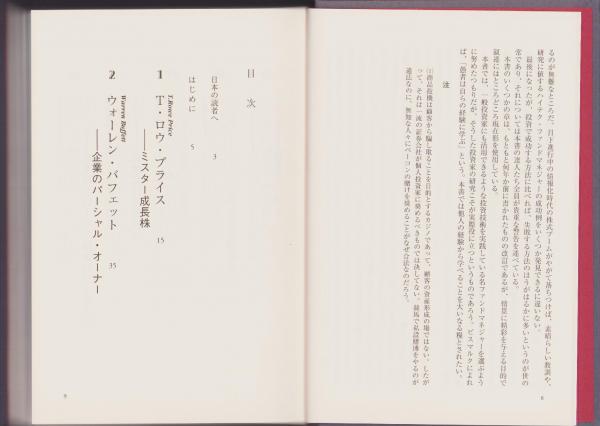 るのが無難なところだ。目下進行中の情報化時代の株式ブームがやがて落ちつけば、素晴らしい教訓や、
研究に値するハイテク・ファンドマネジャーの成功例をいくつか発見できるに違いない。
最後になったが、投資で成功する方法に比べれば、失敗する方法のほうがはるかに多いというのが世の
常であり、それについては本書の達人たち全員が貴重な警告を述べている。
本書のいくつかの章は、もともと何年か前に書かれたものの改訂であるが、情景に精彩を与える目的で
叙述にはところどころ現在形を使用している。
本書では、一般投資家にも活用できるような投資技術を実践している名ファンドマネジャーを選ぶよう
に努めたつもりだが、そうした投資家の研究こそが実際役に立つというものであろう。ビスマルクによれ
ば、「愚者は自らの経験に学ぶ」という。本書では他人の経験から学べることを大いなる糧とされたい。
注
(1)商品投機は顧客から騙し取ることを目的とするカジノであって、顧客の資産形成の場ではない。したが
って、それは一流の証券会社が個人投資家に奨めるべきものでは決してない。競馬で私設賭博をやるのが
違法なのに、無知な人々にベーコンの賭けを奨めることがなぜ合法なのだろう。
8
目次
日本の読者へ 3
はじめに 5
T.Rowe Price
1 T・ロウ・プライス
——ミスター成長株 15
Warren Buffett
2 ウォーレン・バフェット
——企業のパーシャル・オーナー 35
9